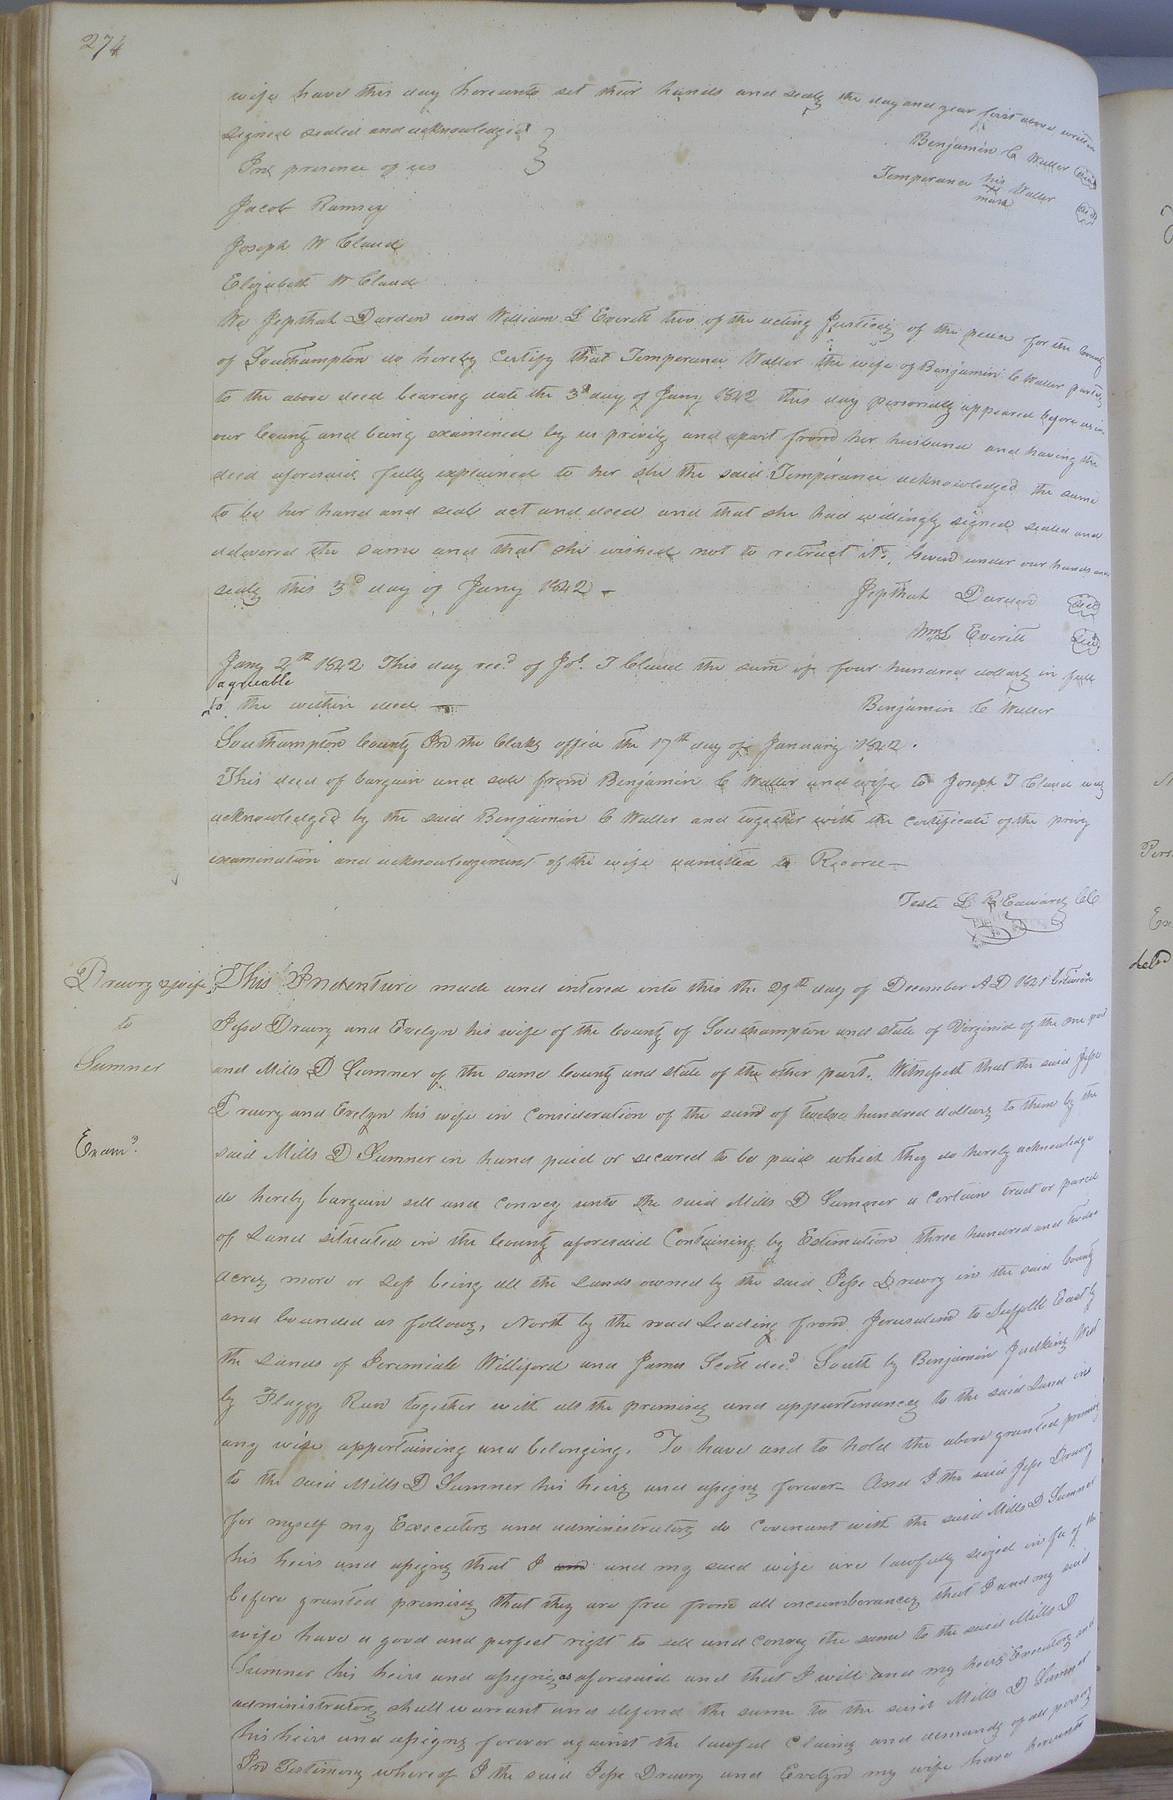 274
wife have this day hereunto set their hands and seals the day and year first above written
Signed sealed and acknowledged
In presence of us
Benjamin C Waller seal
Temperance his mark Waller seal
Jacob Ramsey
Joseph W Claud
Elizabeth W Claud
We Jepthah Darden and William L Everitt two of the acting Justices of the peace for the County
of Southampton do hereby Certify that Temperance Waller the wife of Benjamin C Waller parties
to the above deed bearing date the 3d day of Jany 1842 this day personally appeared before us in
our County and being examined by us privily and apart from her husband and having the
deed aforesaid fully explained to her she the said Temperance acknowledged the same
to be her hand and seal act and deed and that she had willingly signed sealed and
delivered the same and that she wished not to retract it. Given under our hands and
seals this 3d day of Jany 1842 -
Jepthah Darden seal
Wm L Everitt seal
Jany 2th 1842 This day recd of Jos. T Claud the sum of four hundred dollars in full
agreable
to the within deed —
Benjamin C Waller
Southampton County In the Clerks office the 17th day of January 1842.
This deed of bargain and sale from Benjamin C Waller and wife to Joseph T Claud was
acknowledged by the said Benjamin C Waller and together with the certificate of the privy
examination and acknowledgement of the wife admitted to Record —
Teste L R Edwards CC
Drewry & wife
to
Sumner
Examd.
This Indenture made and intered into this the 29th day of December AD 1841 between
Jesse Drewry and Evelyn his wife of the County of Southampton and state of Virginia of the one part
and Mills D Sumner of the same County and state of the other part. Witnesseth that the said Jesse
Drewry and Evelyn his wife in Consideration of the sum of twelve hundred dollars to them by the
said Mills D Sumner in hand paid or secured to be paid which they do hereby acknowledge
do hereby bargain sell and convey unto the said Mills D Sumner a Certain tract or parcel
of Land situated in the County aforesaid Containing by Estimation three hundred and twelve
acres more or less being all the Lands owned by the said Jesse Drewry in the said County
and bounded as follows, North by the road Leading from Jerusalem to Suffolk East by
the Lands of Jeremiah Williford and James Scott decd South by Benjamin Judkins West
by Flaggy Run together with all the premises and appurtenances to the said Land in
any wise appertaining and belonging. To have and to hold the above granted premises
to the said Mills D Sumner his heirs and assigns forever – And I the said Jesse Drewry
for myself my Executors and administrators do Covenant with the said Mills D Sumner
his heirs and assigns that I and and my said wife are lawfully seized in fee of the
before granted premises that they are free from all incumberances that I and my said
wife have a good and perfect right to sell and Convey the same to the said Mills D
Sumner his heirs and assigns as aforesaid and that I will and my heirs Executors and
administrators shall warrant and defend the same to the said Mills D Sumner
his heirs and assigns forever against the lawful Claims and demands of all persons
In Testimony whereof I the said Jesse Drewry and Evelyn my wife have hereunto